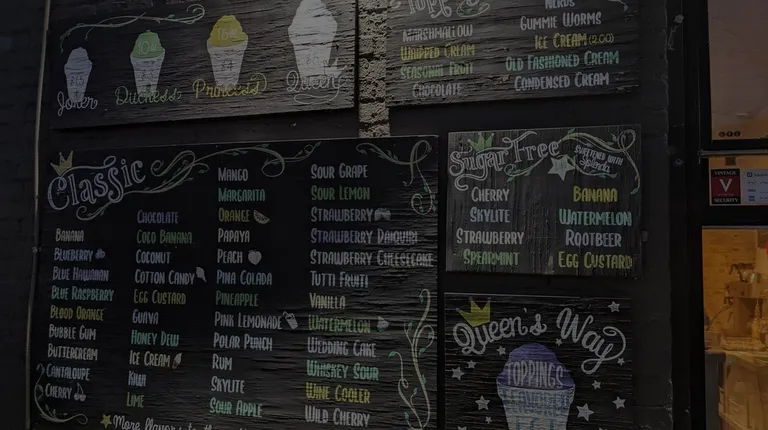 Joker
Duchess
Princess
Queen
MARSHMALLOW
WHIPPED CREAM
SEASONAL FRUIT
CHOCOLATE
NERDS
GUMMIE WORMS
ICE CREAM (2.00)
OLD FASHIONED CREAM
CONDENSED CREAM
Classic
BANANA
BLUEBERRY
BLUE HAWAIIAN
BLUE RASPBERRY
BLOOD ORANGE
BUBBLE GUM
BUTTERCREAM
CANTALOUPE
CHERRY
CHOCOLATE
COCO BANANA
COCONUT
COTTON CANDY
EGG CUSTARD
GUAVA
HONEY DEW
ICE CREAM
KIWI
LIME
MANGO
MARGARITA
ORANGE
PAPAYA
PEACH
PINA COLADA
PINEAPPLE
PINK LEMONADE
POLAR PUNCH
RUM
SKYLITE
SOUR APPLE
SOUR GRAPE
SOUR LEMON
STRAWBERRY
STRAWBERRY DAIQUIRI
STRAWBERRY CHEESECAKE
TUTTI FRUITI
VANILLA
WATERMELON
WEDDING CAKE
WHISKEY SOUR
WINE COOLER
WILD CHERRY
More flavors to the
Sugar Free
SWEETENED WITH
Splenda
CHERRY
SKYLITE
STRAWBERRY
SPEARMINT
BANANA
WATERMELON
ROOTBEER
EGG CUSTARD
Queen's Way
TOPPINGS
FLAVORED
VINTAGE
V
SECURITY